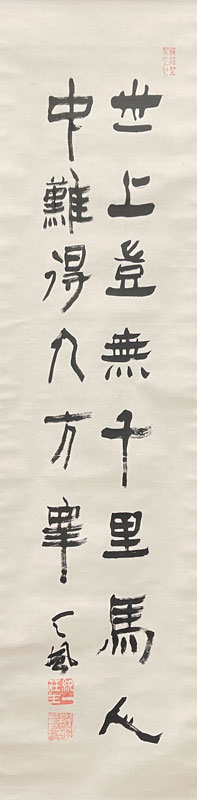 世上豈無千里馬人
中難得九方皋
風